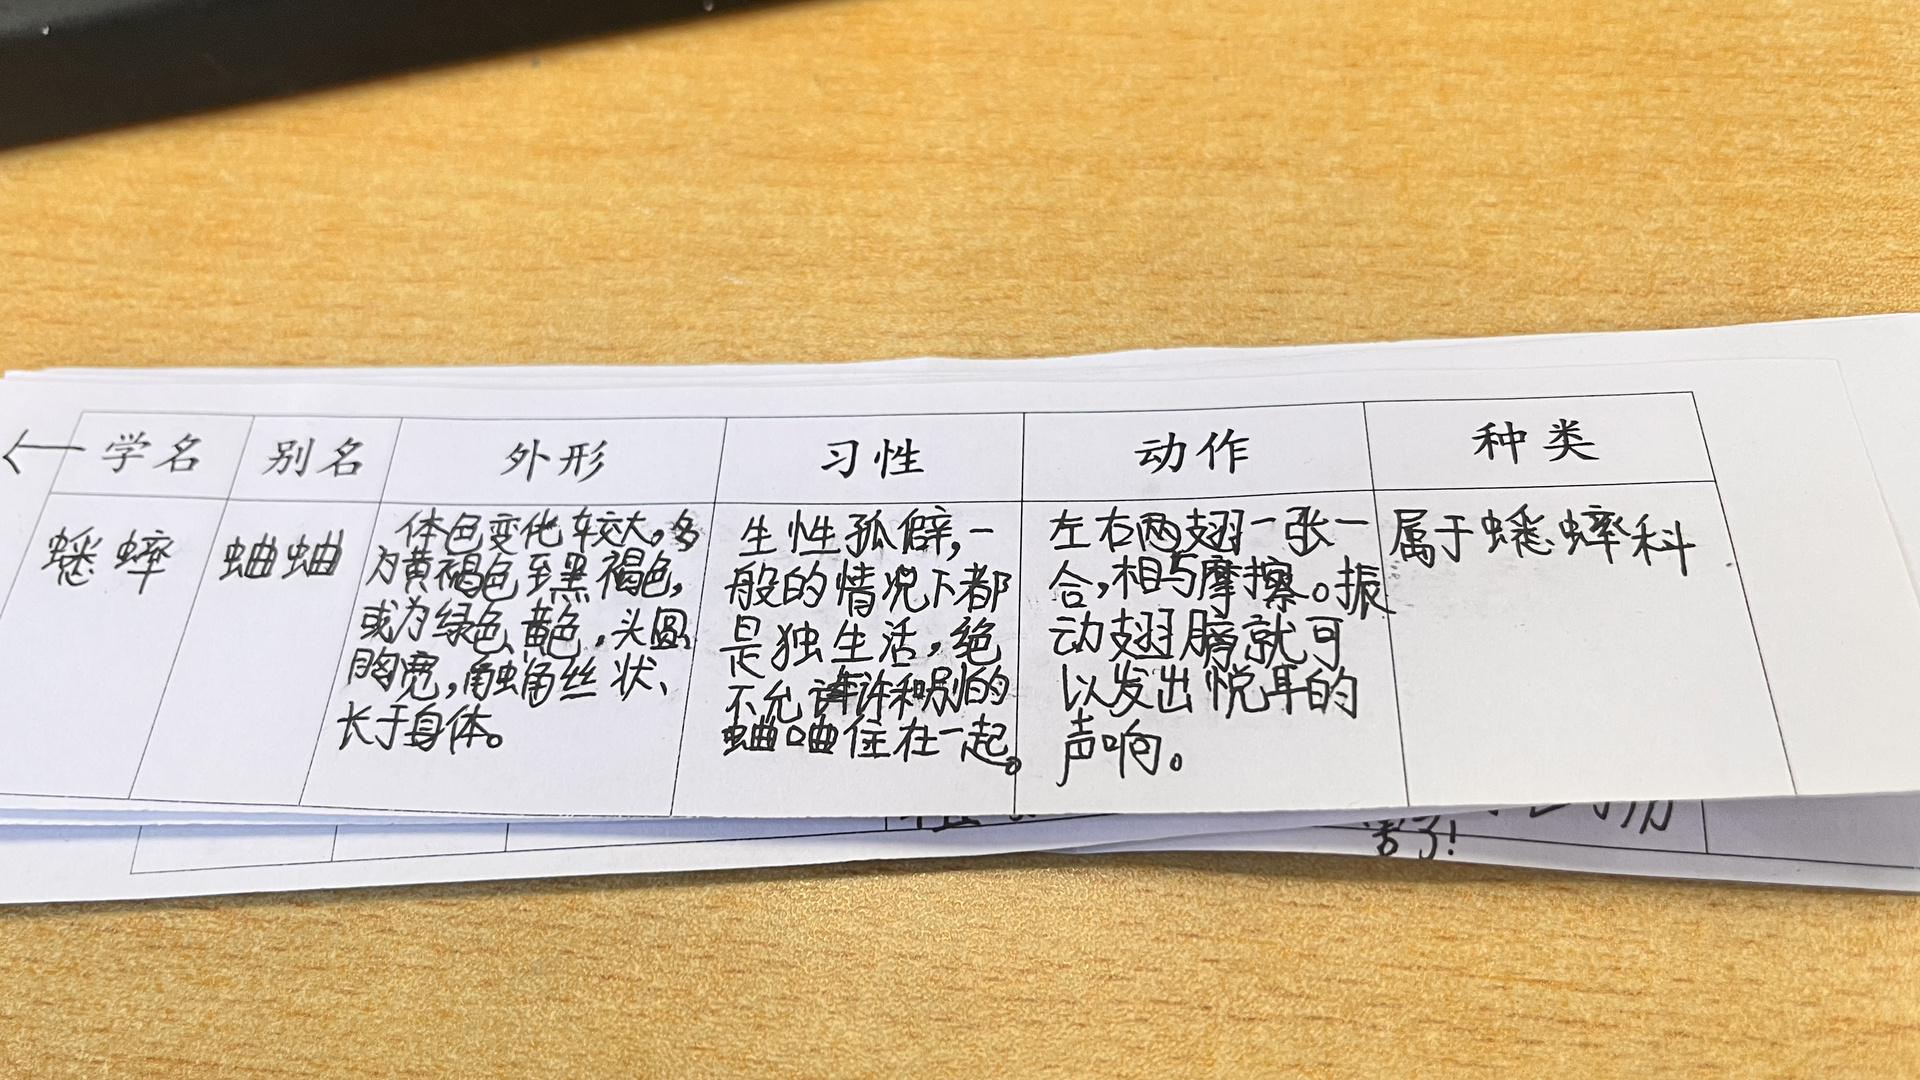 学名 别名 外形 习性 动作 种类
蟋蟀
蛐蛐
体色变化较大。多
为黄褐色至黑褐色,
或为绿色、黄色,头圆、
胸宽,触角丝状、
长于身体。
生性孤僻,一
般的情况下都
是独生活,绝
不允许和别的
蛐蛐住在一起。
左右两翅一张一
合,相与摩擦。振
动翅膀就可
以发出悦耳的
声响。
属于蟋蟀科
害了!